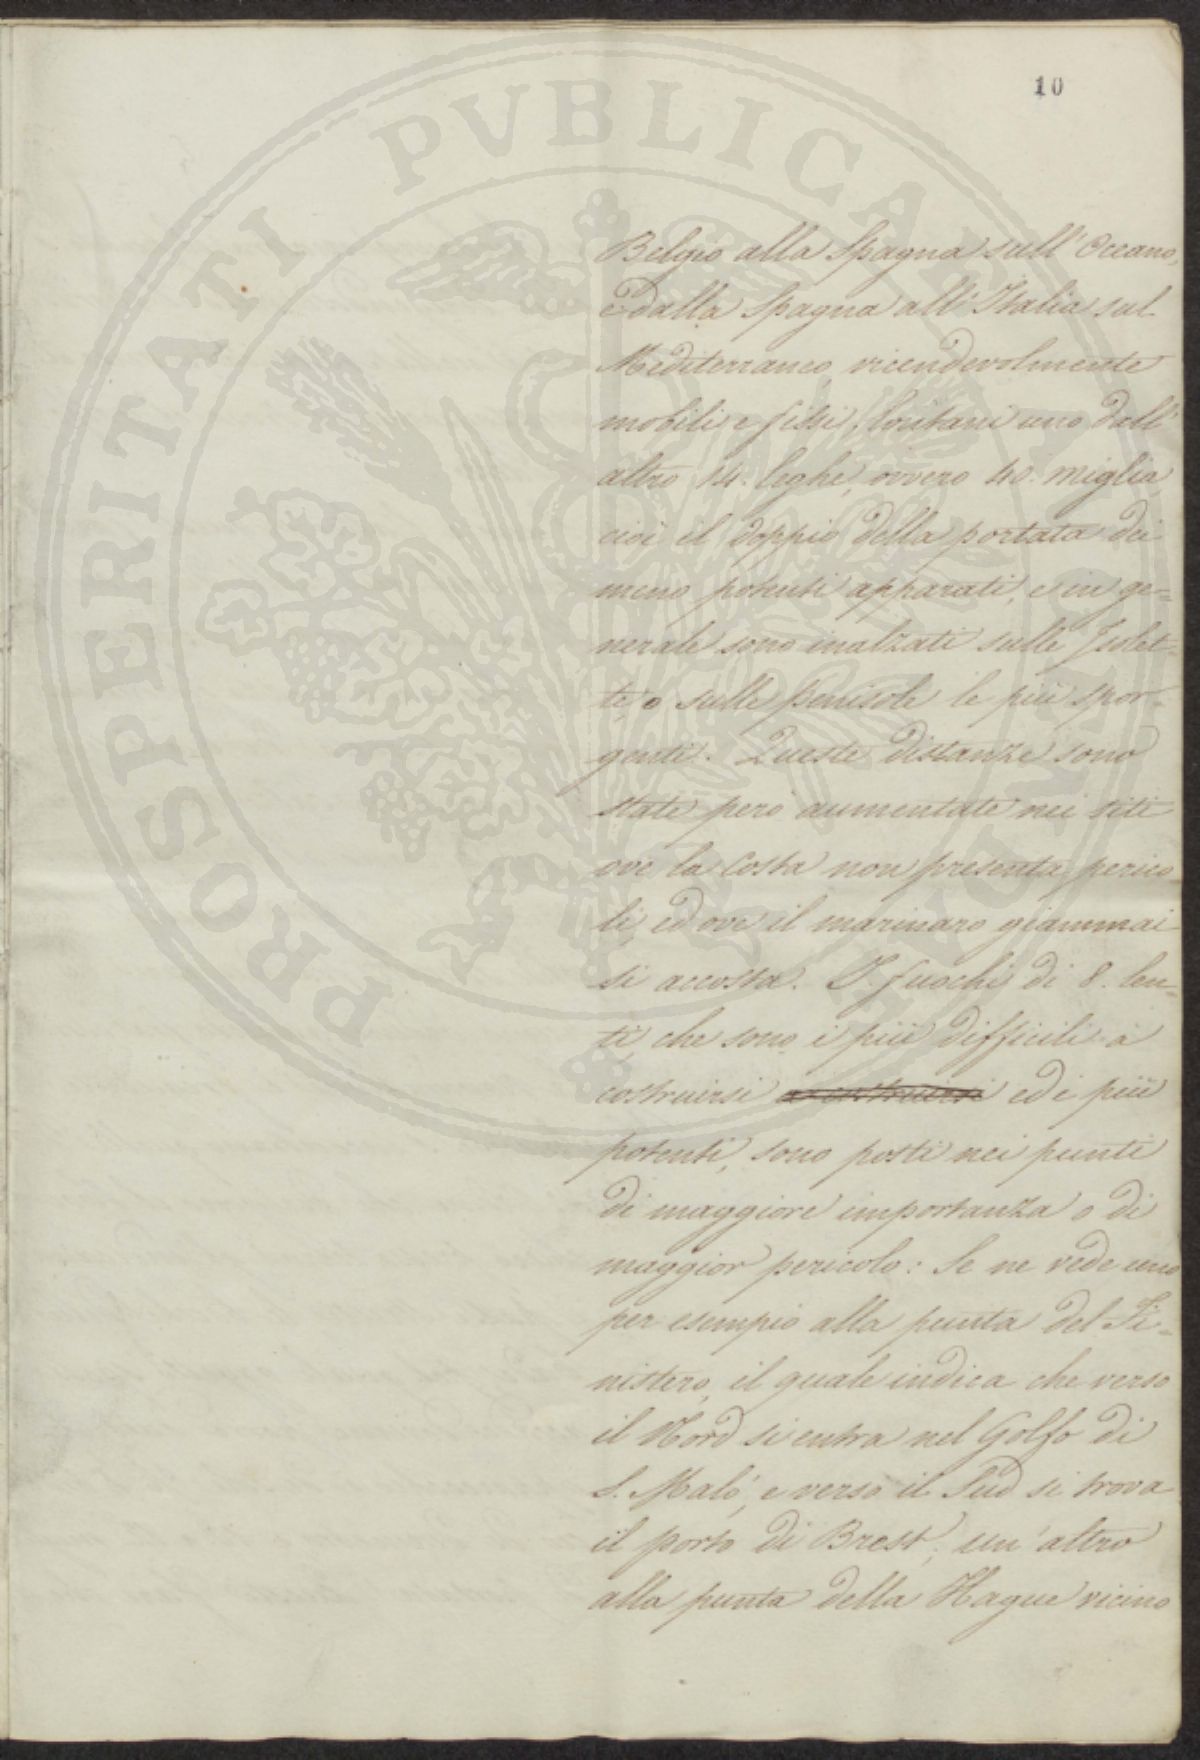 10
PROSPERITATI PVBLICAE
Belgio alla Spagna sull' Oceano,
e dalla Spagna all' Italia sul
Mediterraneo, vicendevolmente
mobili e fissi, lontani uno dall'
altro 14. leghe, ovvero 40. miglia
cioè il doppio della portata dei
meno potenti apparati, e in ge=
nerale sono inalzati sulle Isolet=
te, o sulle Penisole le più spor=
genti. Queste distanze sono
state però aumentate nei siti
ove la Costa non presenta perico
li, ed ove il marinaro giammai
si accosta. I fuochi di 8. len=
ti, che sono i più difficili a
costruirsi a costruirsi ed i più
potenti, sono posti nei punti
di maggiore importanza o di
maggior pericolo: Se ne vede uno
per esempio alla punta del Fi=
nistero, il quale indica che verso
il Nord si entra nel Golfo di
S. Malò, e verso il Sud si trova
il porto di Brest; un' altro
alla punta della Hague vicino